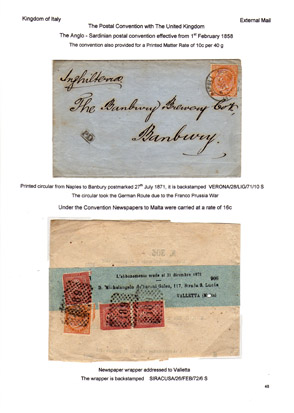 Kingdom of Italy
External Mail
The Postal Convention with The United Kingdom
The Anglo - Sardinian postal convention effective from 1st February 1858
The convention also provided for a Printed Matter Rate of 10c per 40 g
Inghilterra
The Banbury Brewery Co
Banbury
Printed circular from Naples to Banbury postmarked 27th July 1871, it is backstamped VERONA/28/LIG/71/10 S
The circular took the German Route due to the Franco Prussia War
Under the Convention Newspapers to Malta were carried at a rate of 16c
L'abbonamento scade al 31 dicembre 1872
900
117, Strada S. Lucia
VALLETTA
Newspaper wrapper addressed to Valletta
The wrapper is backstamped SIRACUSA/26/FEB/72/6 S
48